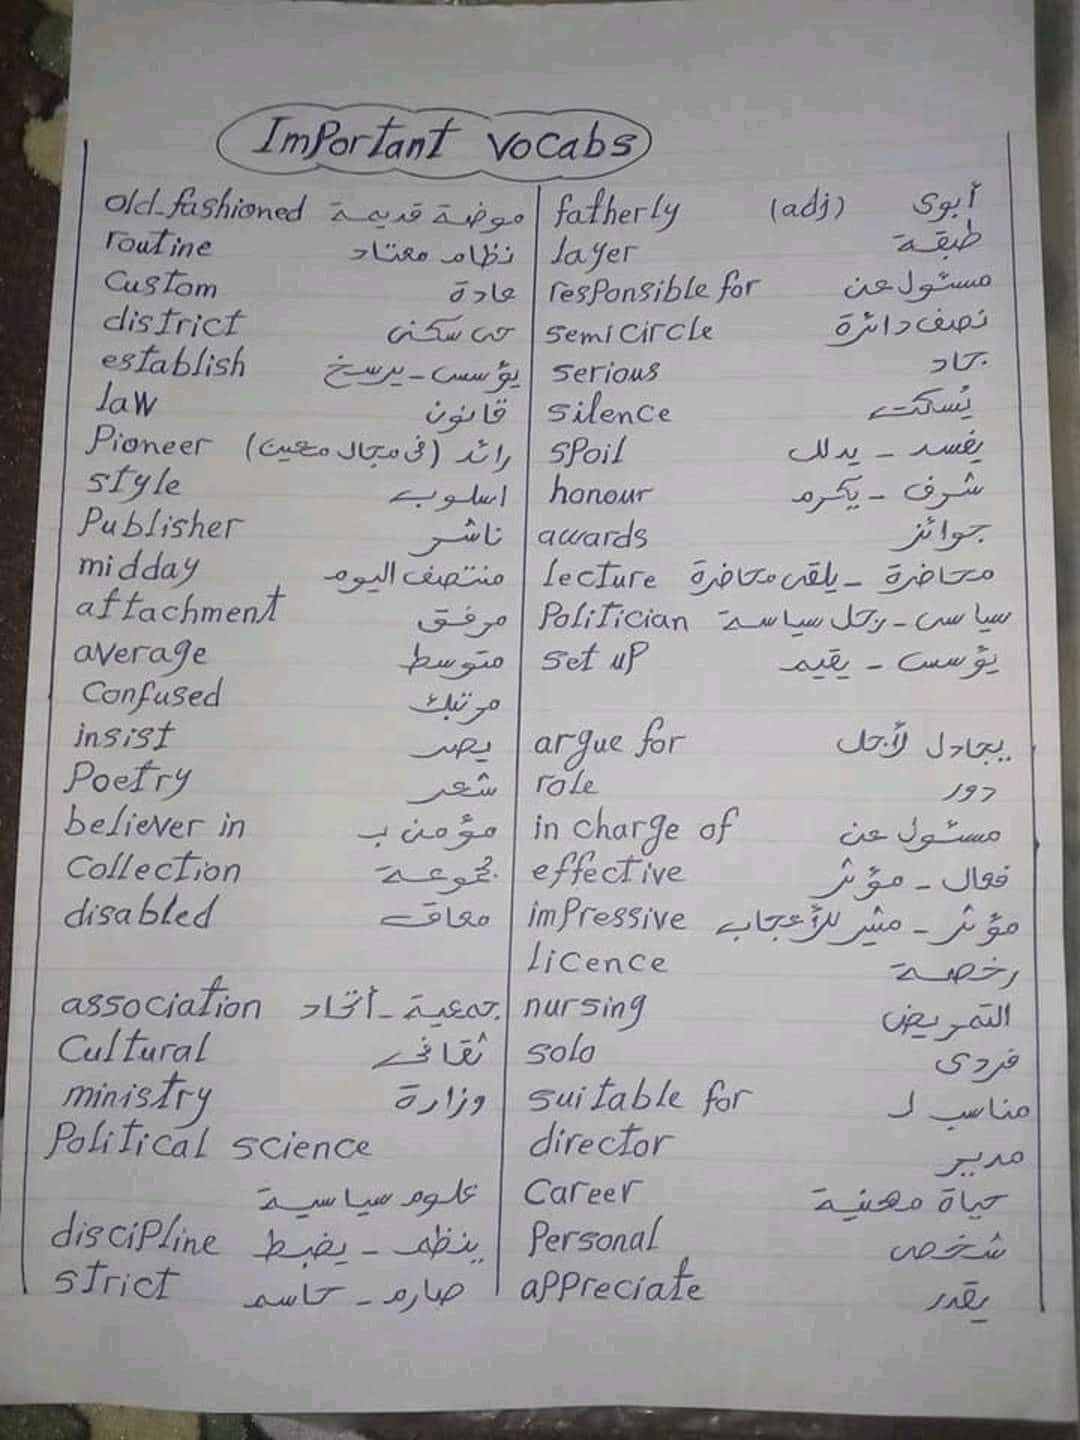 Important Vocabs
old-fashioned موضة قديمة
routine نظام معتاد
Custom عادة
district حى سكنى
establish يؤسس - يرسخ
law قانون
Pioneer رائد (فى مجال معين)
style اسلوب
Publisher ناشر
midday منتصف اليوم
attachment مرفق
average متوسط
Confused مرتبك
insist يصر
Poetry شعر
believer in مؤمن ب
Collection مجموعة
disabled معاق
association جمعية - أتحاد
Cultural ثقافى
ministry وزارة
Political science
علوم سياسية
discipline ينظم - يضبط
strict صارم - حاسم
fatherly (adj) أبوى
layer طبقة
responsible for مسئول عن
semicircle نصف دائرة
serious جاد
silence يُسكت
spoil يفسد - يدلل
honour شرف - يكرم
awards جوائز
lecture محاضرة - يلقى محاضرة
Politician سياسى - رجل سياسة
set up يؤسس - يقيم
argue for يجادل لأجل
role دور
in charge of مسئول عن
effective فعال - مؤثر
impressive مؤثر - مثير للأعجاب
licence رخصة
nursing التمريض
solo فردى
suitable for مناسب ل
director مدير
Career حياة مهنية
Personal شخصى
appreciate يقدر